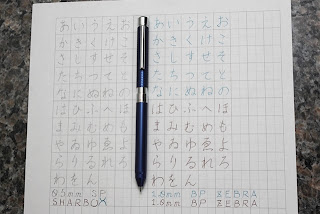 あいうえお あいうえお
かきくけこ かきくけこ
さしすせそ さしすせそ
たちつてと たちつてと
なにぬねの なにぬねの
はひふへほ はひふへほ
まみむめも まみむめも
やゐゆゑよ やゐゆゑよ
らりるれろ らりるれろ
わをん わをん
0.5mm SP 1.0mm BP ZEBRA
SHARBOX 1.0mm BP ZEBRA